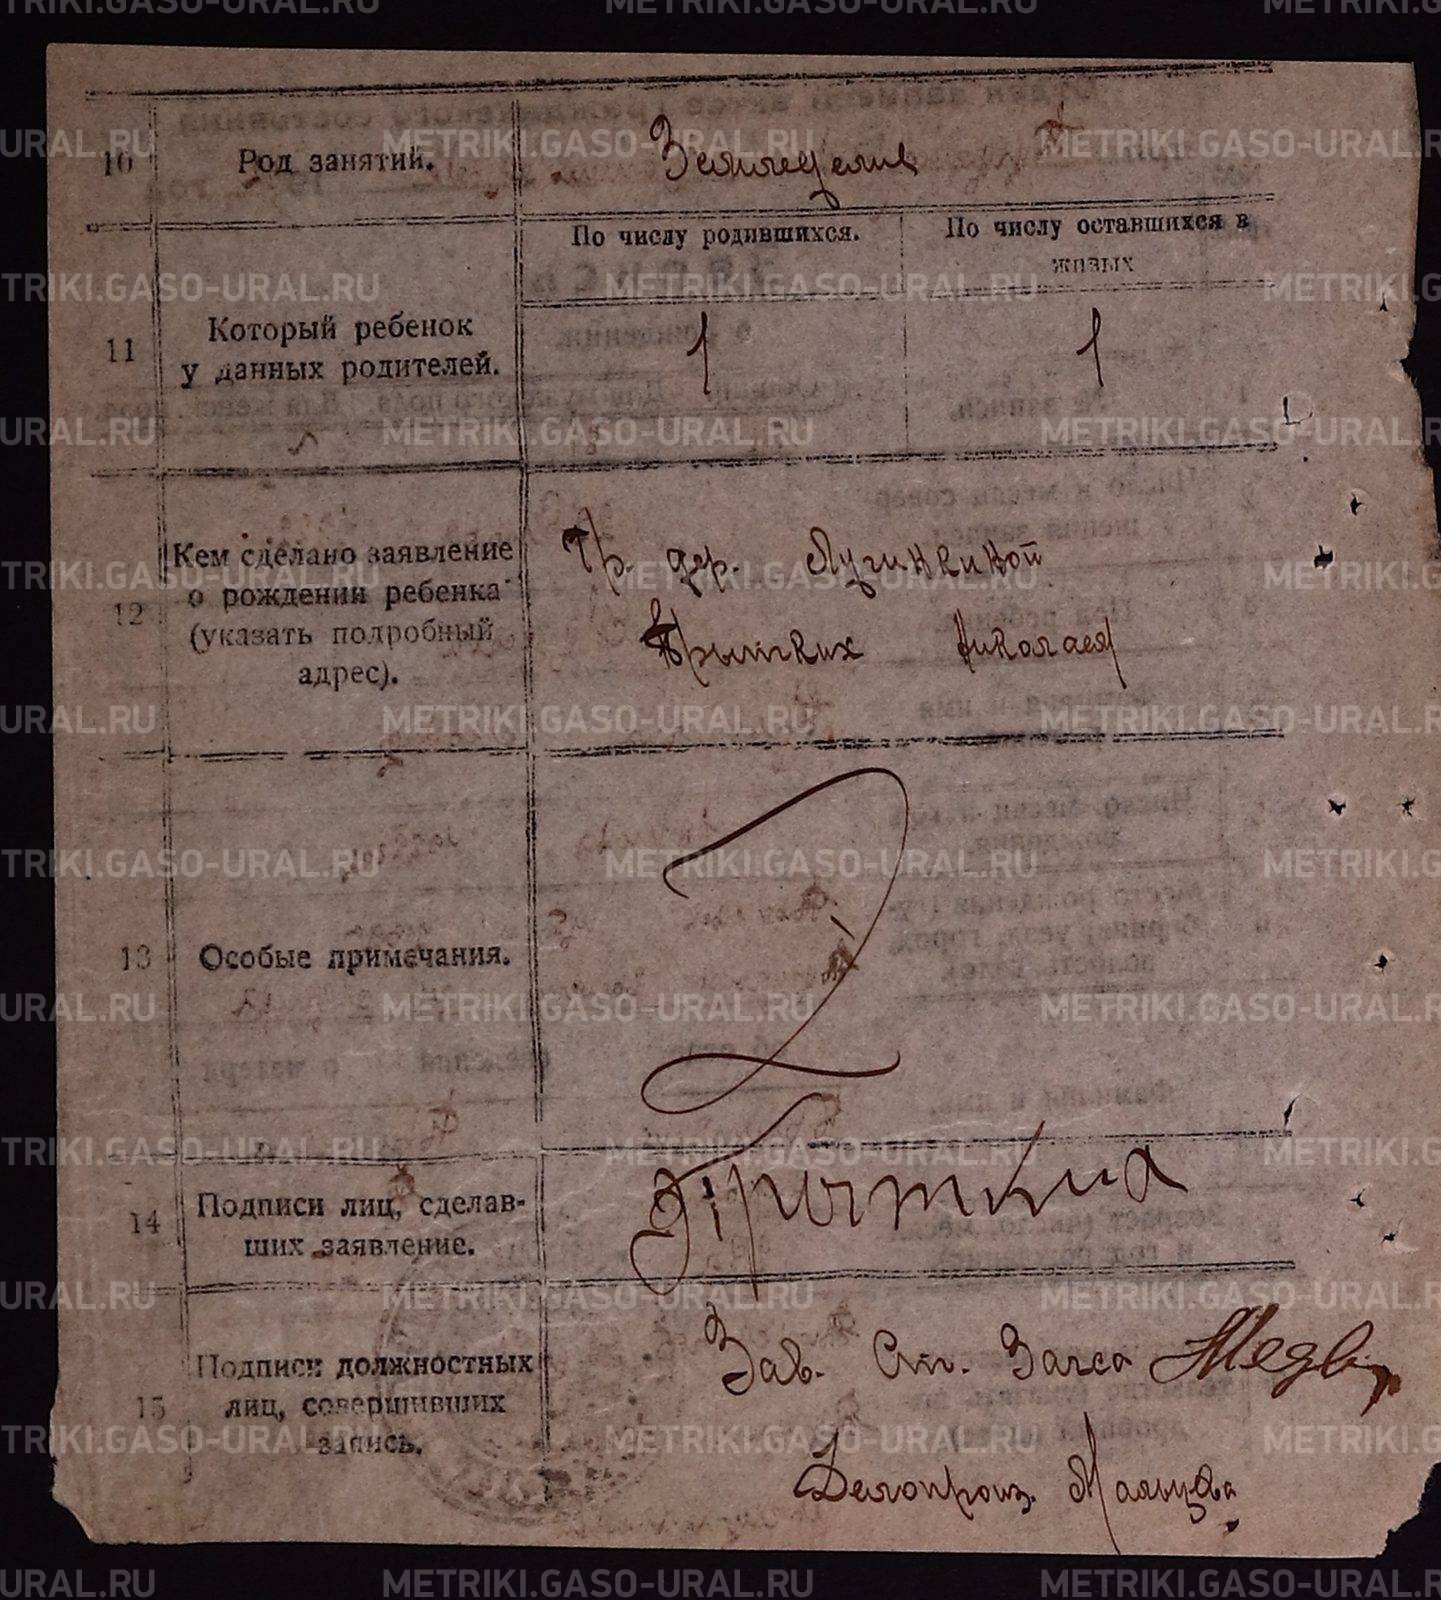 10
Род занятий.
Земледелие
11
Который ребенок
у данных родителей.
По числу родившихся.
По числу оставшихся в
живых
1
1
12
Кем сделано заявление
о рождении ребенка
(указать подробный
адрес).
Гр. дер. Лучинкиной
Николаем
13
Особые примечания.
14
Подписи лиц, сделав-
ших заявление.
15
Подписи должностных
лиц, совершивших
запись.
Зав. Ст. Загса
Делопроиз. Мальцева
METRIKI.GASO-URAL.RU